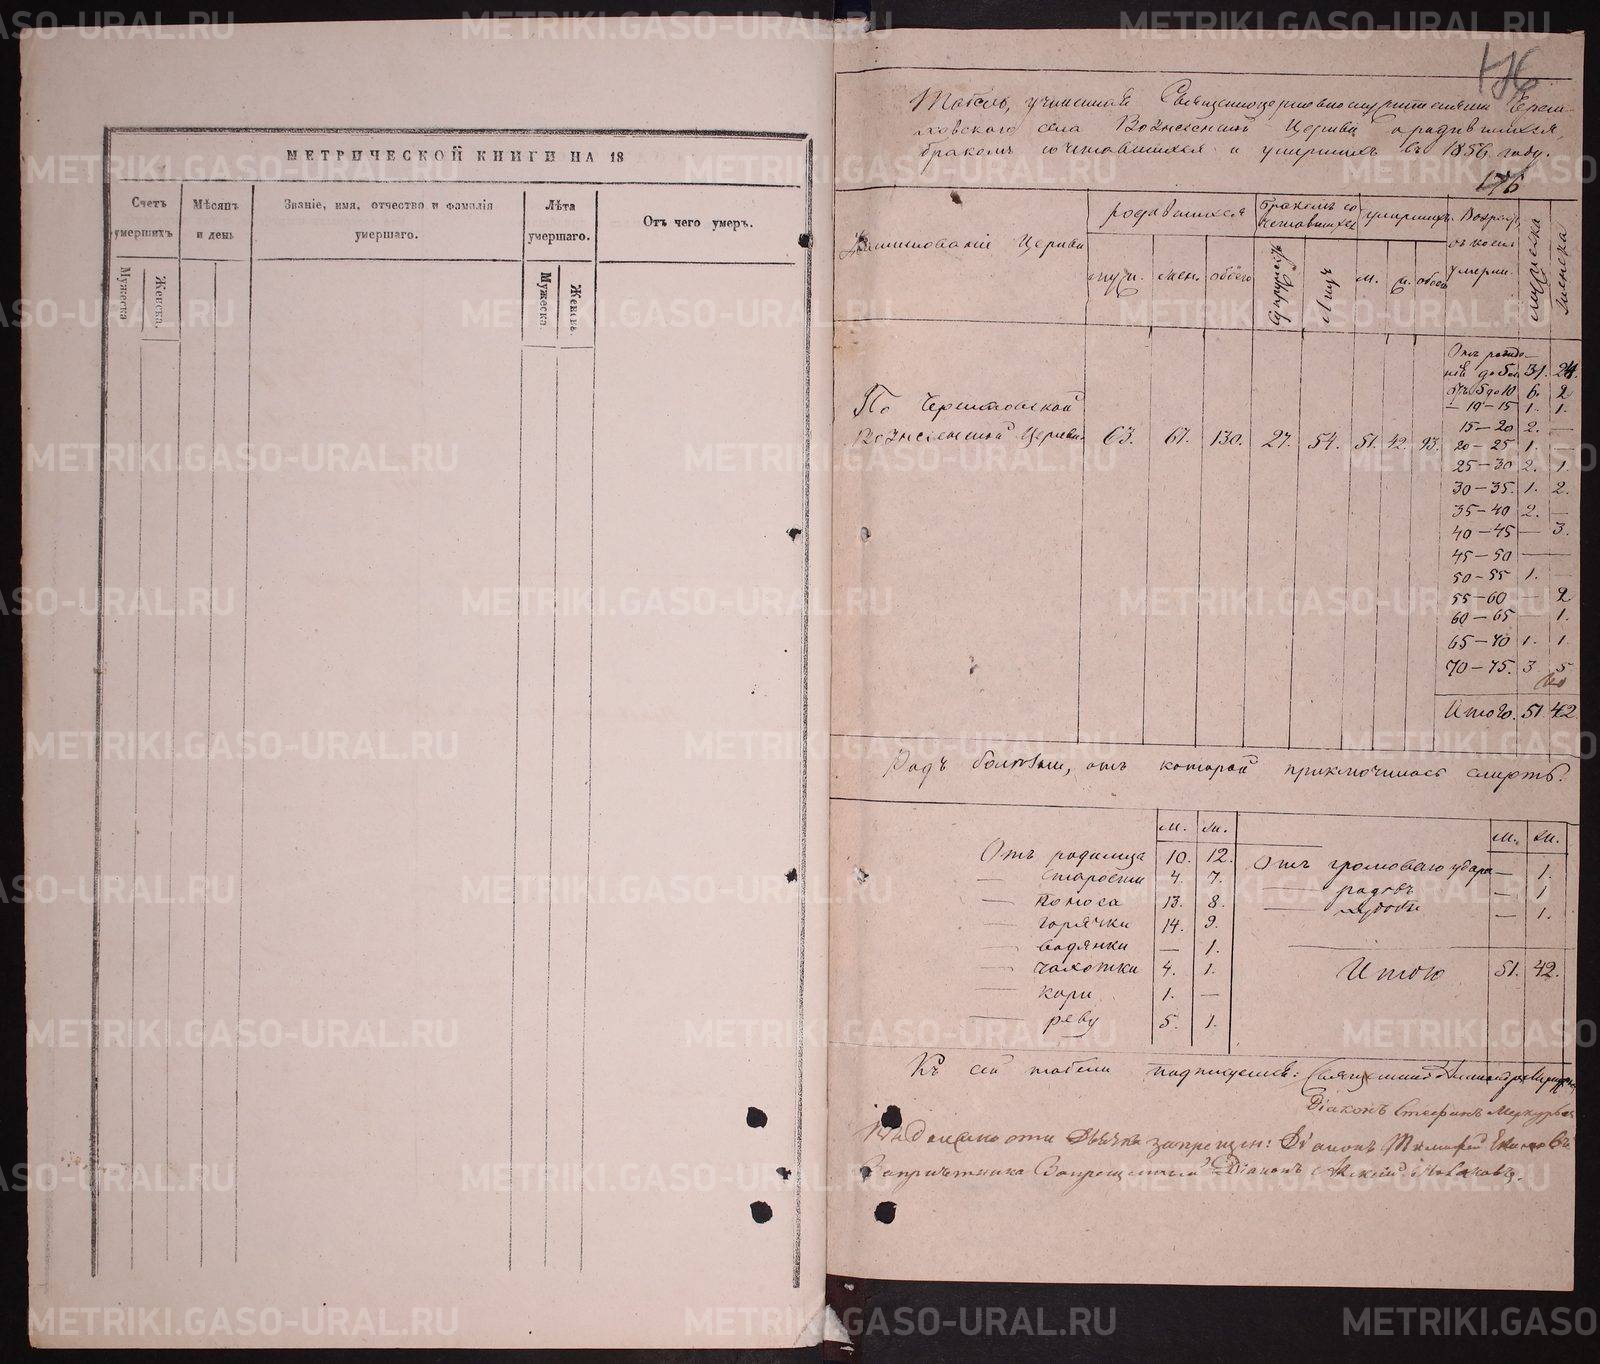 МЕТРИЧЕСКОЙ КНИГИ НА 18
Счетъ умершихъ
Мѣсяцъ и день
Званіе, имя, отчество и фамилія умершаго.
Лѣта умершаго.
Отъ чего умеръ.
Мужеска
Женска.
Мужеска.
Женск.
176
Табель, учиненная Священноцерковнослужителями
села Вознесенской Церкви о родившихся,
бракомъ сочетавшихся и умершихъ въ 1856 году.
176
Наименованіе Церкви
родившихся
бракомъ сочетавшихся
умершихъ
муж. жен. обоего
Супружествъ Лицъ
м. ж. обоего
мужеска
женска
По
Вознесенской Церкви
63. 67. 130. 27. 54. 51. 42. 93.
Отъ рожденія до 5 лѣт. 31. 24.
Отъ 5 до 10 6. 2
— 10 — 15 1. 1.
15 — 20 2. —
20 — 25 1. —
25 — 30 2. 1.
30 — 35. 1. 2.
35 — 40 2. —
40 — 45 — 3.
45 — 50 — —
50 — 55 1. —
55 — 60 — 2
60 — 65 — 1.
65 — 70 1. 1.
70 — 75. 3 5
Итого. 51. 42
Родъ болѣзни, отъ которой приключилась смерть.
м. ж. м. ж.
Отъ родимца 10. 12.
— Старости 4. 7.
— поноса 13. 8.
— горячки 14. 9.
— водянки — 1.
— чахотки 4. 1.
— кори 1. —
— реву 5. 1.
Отъ громоваго удара — 1.
— родовъ — 1
— — 1.
Итого 51. 42.
Къ сей табели подписуемся: Священникъ
Діаконъ Стефанъ
Діаконъ
Діаконъ
METRIKI.GASO-URAL.RU